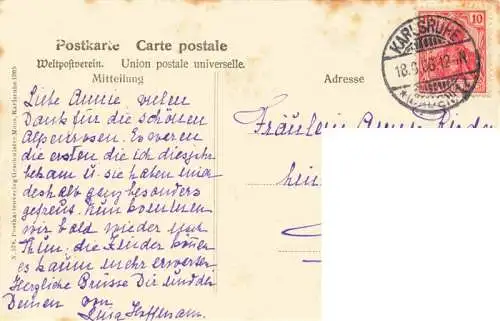 Postkarte Carte postale
Weltpostverein. Union postale universelle.
Mitteilung
Adresse
10
KARLSRUHE
18.9. 12-
Liebe Annie, vielen
Dank für die schönen
Alpenrosen. Es waren
die ersten die ich dies Jahr
bekam u. sie haben mich
deshalb ganz besonders
gefreut. Nun kommen
wir bald wieder nach
die Kinder können
es kaum mehr erwarten
Herzliche Grüsse Dir und den
Deinen von
Hoffmann.
Fräulein